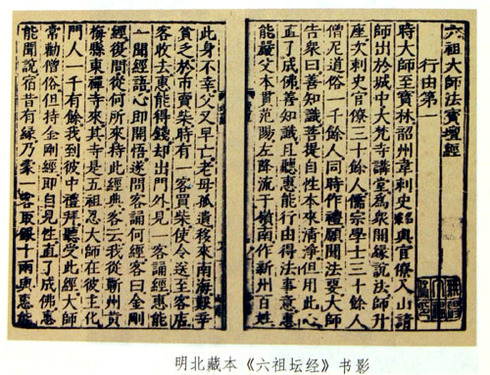 六祖大師法寶壇經
行由第一
時大師至寶林韶州韋刺史與官僚入山請
師出於城中大梵寺講堂為眾開緣說法師升
座次刺史官僚三十餘人儒宗學士三十餘人
僧尼道俗一千餘人同時作禮願聞法要大師
告眾曰善知識菩提自性本來清淨但用此心
直了成佛善知識且聽惠能行由得法事意惠
能嚴父本貫范陽左降流于嶺南作新州百姓
此身不幸父又早亡老母孤遺移來南海艱辛
貧乏於市賣柴時有一客買柴使令送至客店
客收去惠能得錢却出門外見一客誦經惠能
一聞經語心即開悟遂問客誦何經客曰金剛
經復問從何所來持此經典客云我從蘄州黃
梅縣東禪寺來其寺是五祖忍大師在彼主化
門人一千有餘我到彼中禮拜聽受此經大師
常勸僧俗但持金剛經即自見性直了成佛惠
能聞說宿昔有緣乃蒙一客取銀十兩與惠能
明北藏本《六祖坛经》书影